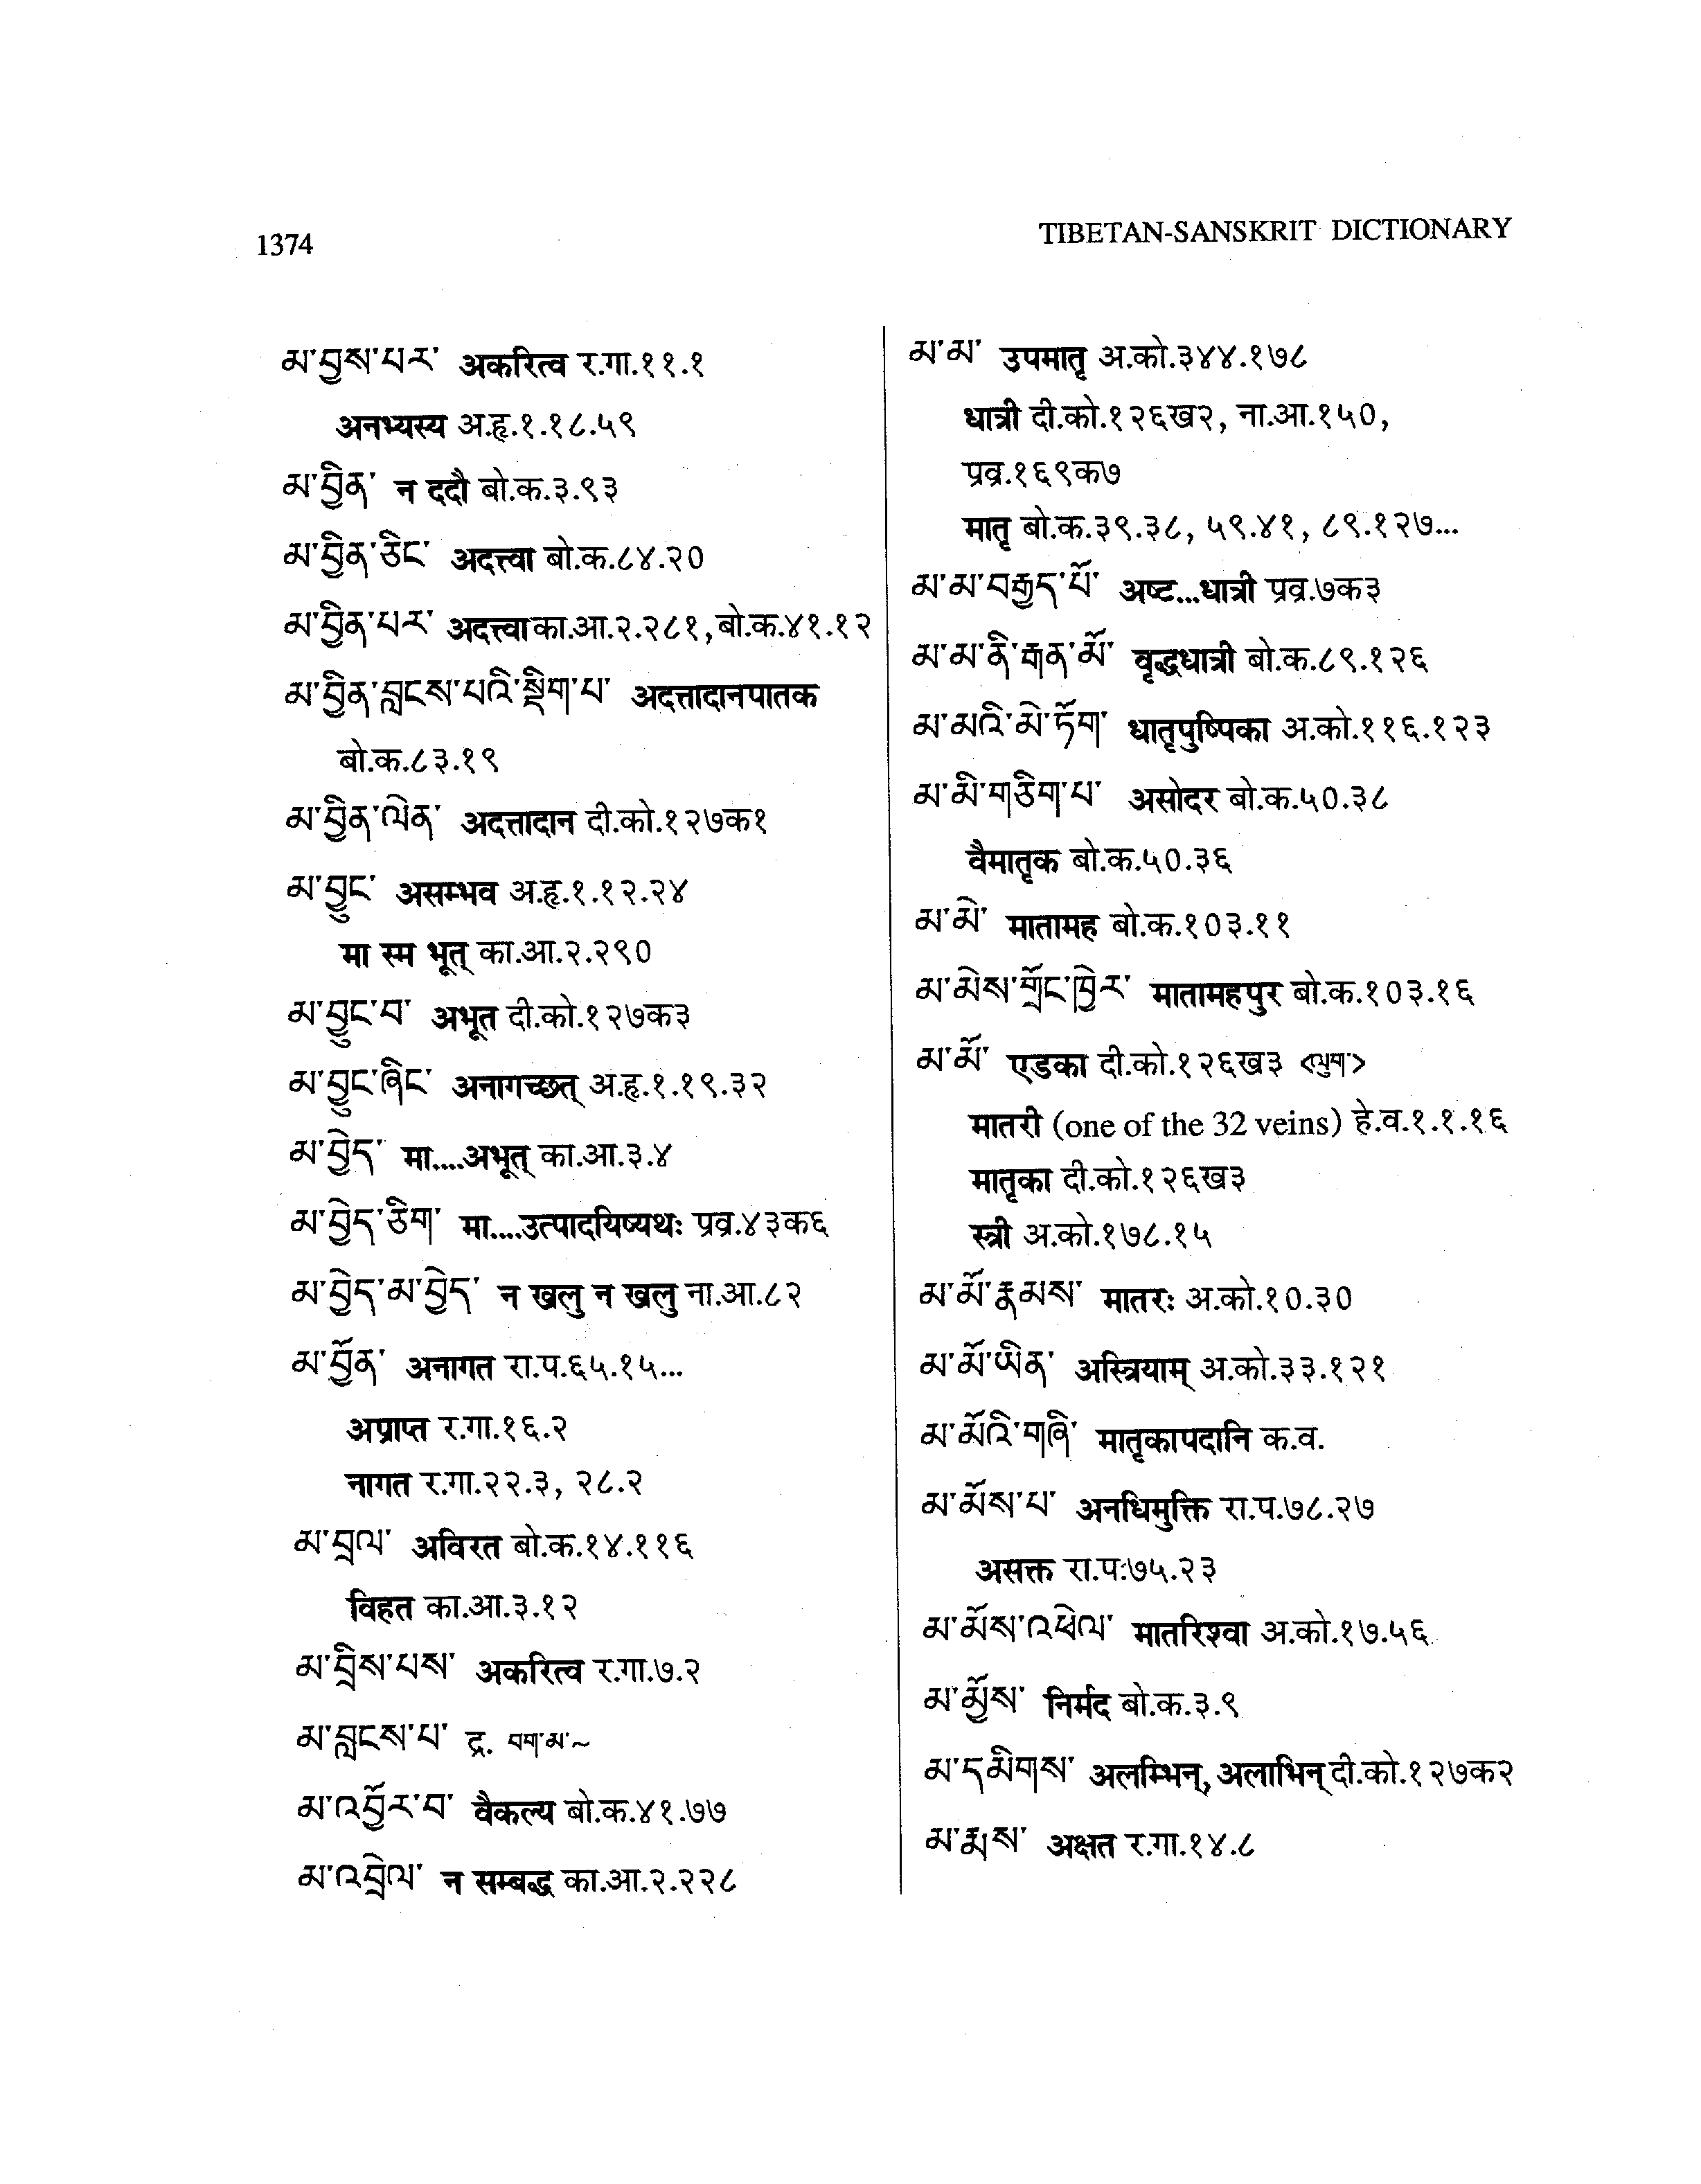 1374
TIBETAN-SANSKRIT DICTIONARY
མ་བྱས་པར་ अकरित्व र.गा.११.१
अनभ्यस्य अ.हृ.१.१८.५९
མ་བྱིན་ न ददौ बो.क.३.९३
མ་བྱིན་ཅིང་ अदत्त्वा बो.क.८४.२०
མ་བྱིན་པར་ अदत्त्वा का.आ.२.२८१, बो.क.४१.१२
མ་བྱིན་བླངས་པའི་སྡིག་པ་ अदत्तादानपातक
बो.क.८३.१९
མ་བྱིན་ལེན་ अदत्तादान दी.को.१२७क१
མ་བྱུང་ असम्भव अ.हृ.१.१२.२४
मा स्म भूत् का.आ.२.२९०
མ་བྱུང་བ་ अभूत दी.को.१२७क३
མ་བྱུང་ཞིང་ अनागच्छत् अ.हृ.१.१९.३२
མ་བྱེད་ मा....अभूत् का.आ.३.४
མ་བྱེད་ཅིག་ मा....उत्पादयिष्यथः प्रव्र.४३क६
མ་བྱེད་མ་བྱེད་ न खलु न खलु ना.आ.८२
མ་བྱོན་ अनागत रा.प.६५.१५...
अप्राप्त र.गा.१६.२
नागत र.गा.२२.३, २८.२
མ་བྲལ་ अविरत बो.क.१४.११६
विहत का.आ.३.१२
མ་བྲིས་པས་ अकरित्व र.गा.७.२
མ་བླངས་པ་ द्र. བག་མ་~
མ་འབྱོར་བ་ वैकल्य बो.क.४१.७७
མ་འབྲེལ་ न सम्बद्ध का.आ.२.२२८
མ་མ་ उपमातृ अ.को.३४४.१७८
धात्री दी.को.१२६ख२, ना.आ.१५०,
प्रव्र.१६९क७
मातृ बो.क.३९.३८, ५९.४१, ८९.१२७...
མ་མ་བརྒྱད་པོ་ अष्ट...धात्री प्रव्र.७क३
མ་མ་ནི་རྒན་མོ་ वृद्धधात्री बो.क.८९.१२६
མ་མའི་མེ་ཏོག་ धातृपुष्पिका अ.को.११६.१२३
མ་མི་གཅིག་པ་ असोदर बो.क.५०.३८
वैमातृक बो.क.५०.३६
མ་མེ་ मातामह बो.क.१०३.११
མ་མེས་གྲོང་ཁྱེར་ मातामहपुर बो.क.१०३.१६
མ་མོ་ एडका दी.को.१२६ख३ <ལུག་>
मातरी (one of the 32 veins) हे.व.१.१.१६
मातृका दी.को.१२६ख३
स्त्री अ.को.१७८.१५
མ་མོ་རྣམས་ मातरः अ.को.१०.३०
མ་མོ་ཡིན་ अस्त्रियाम् अ.को.३३.१२१
མ་མོའི་གཞི་ मातृकापदानि क.व.
མ་མོས་པ་ अनधिमुक्ति रा.प.७८.२७
असक्त रा.प:७५.२३
མ་མོས་འཕེལ་ मातरिश्वा अ.को.१७.५६
མ་མྱོས་ निर्मद बो.क.३.९
མ་དམིགས་ अलम्भिन्, अलाभिन् दी.को.१२७क२
མ་རྨས་ अक्षत र.गा.१४.८